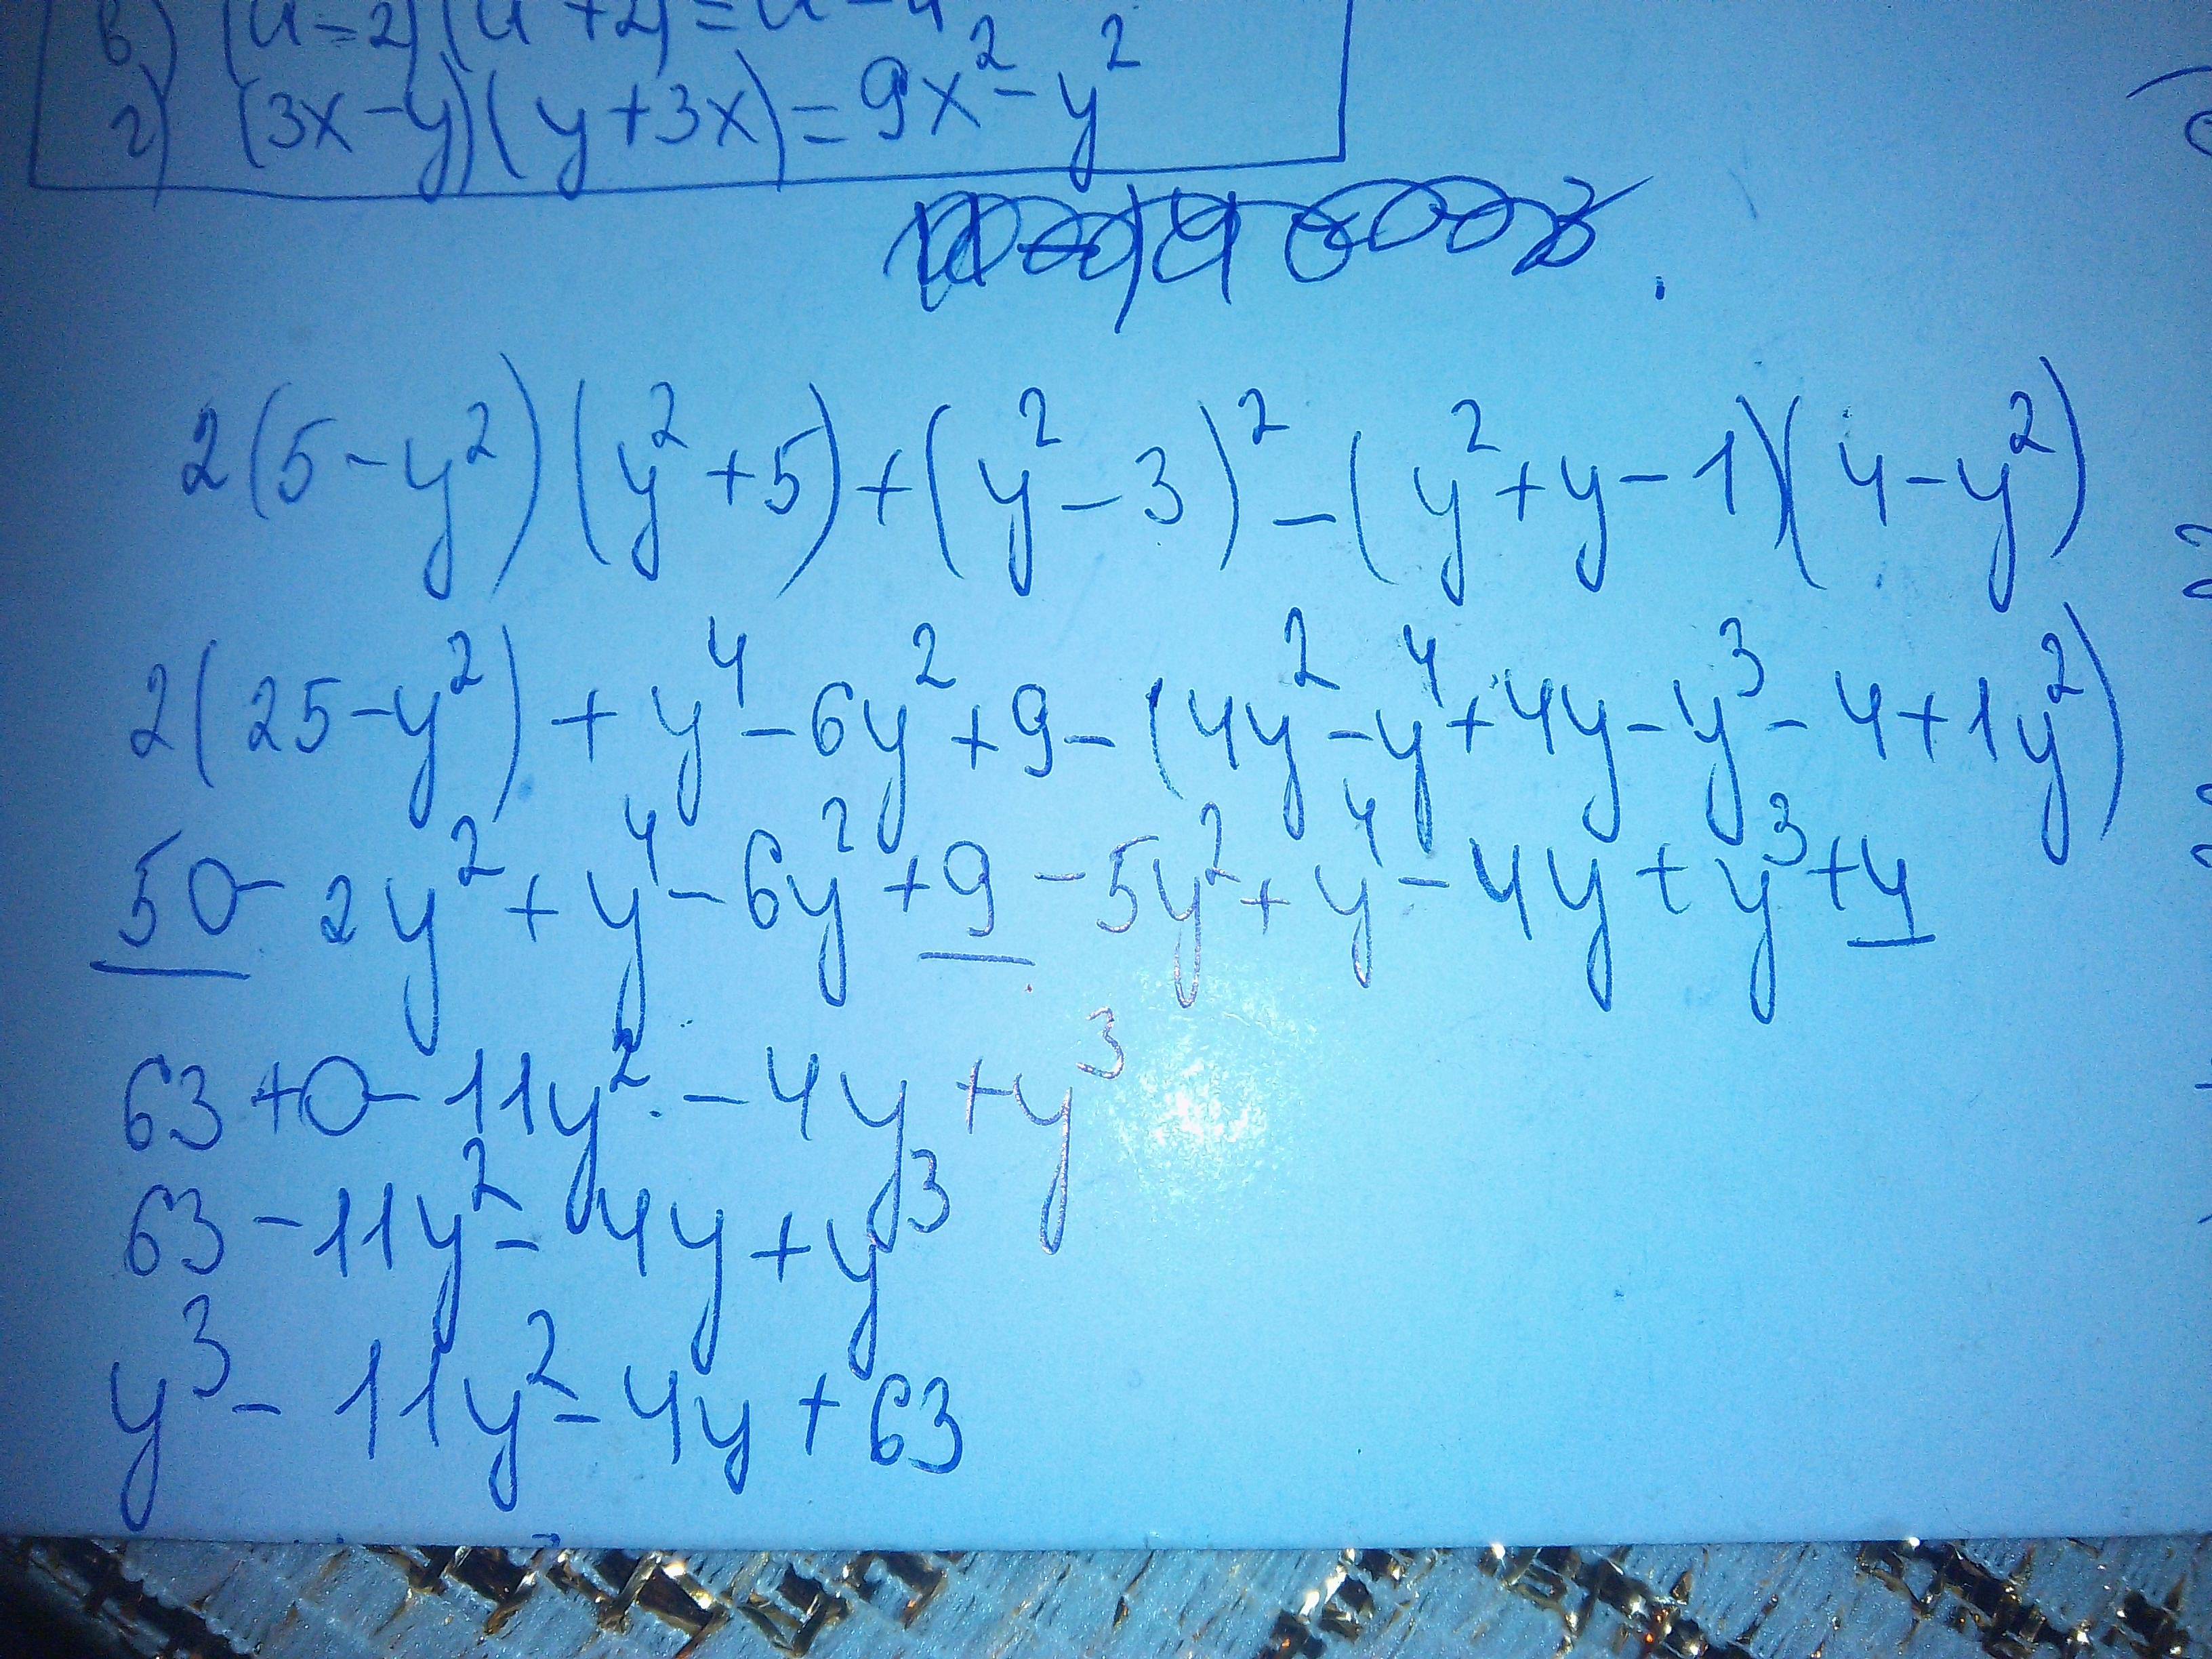 в) (u-2)(u+2)=u²-4
г) (3x-y)(y+3x)=9x²-y²
2(5-y²)(y²+5)+(y²-3)²-(y²+y-1)(4-y²)
2(25-y²)+y⁴-6y²+9-(4y²-y⁴+4y-y³-4+1y²)
50-2y²+y⁴-6y²+9-5y²+y⁴-4y+y³+4
63+0-11y²-4y+y³
63-11y²-4y+y³
y³-11y²-4y+63